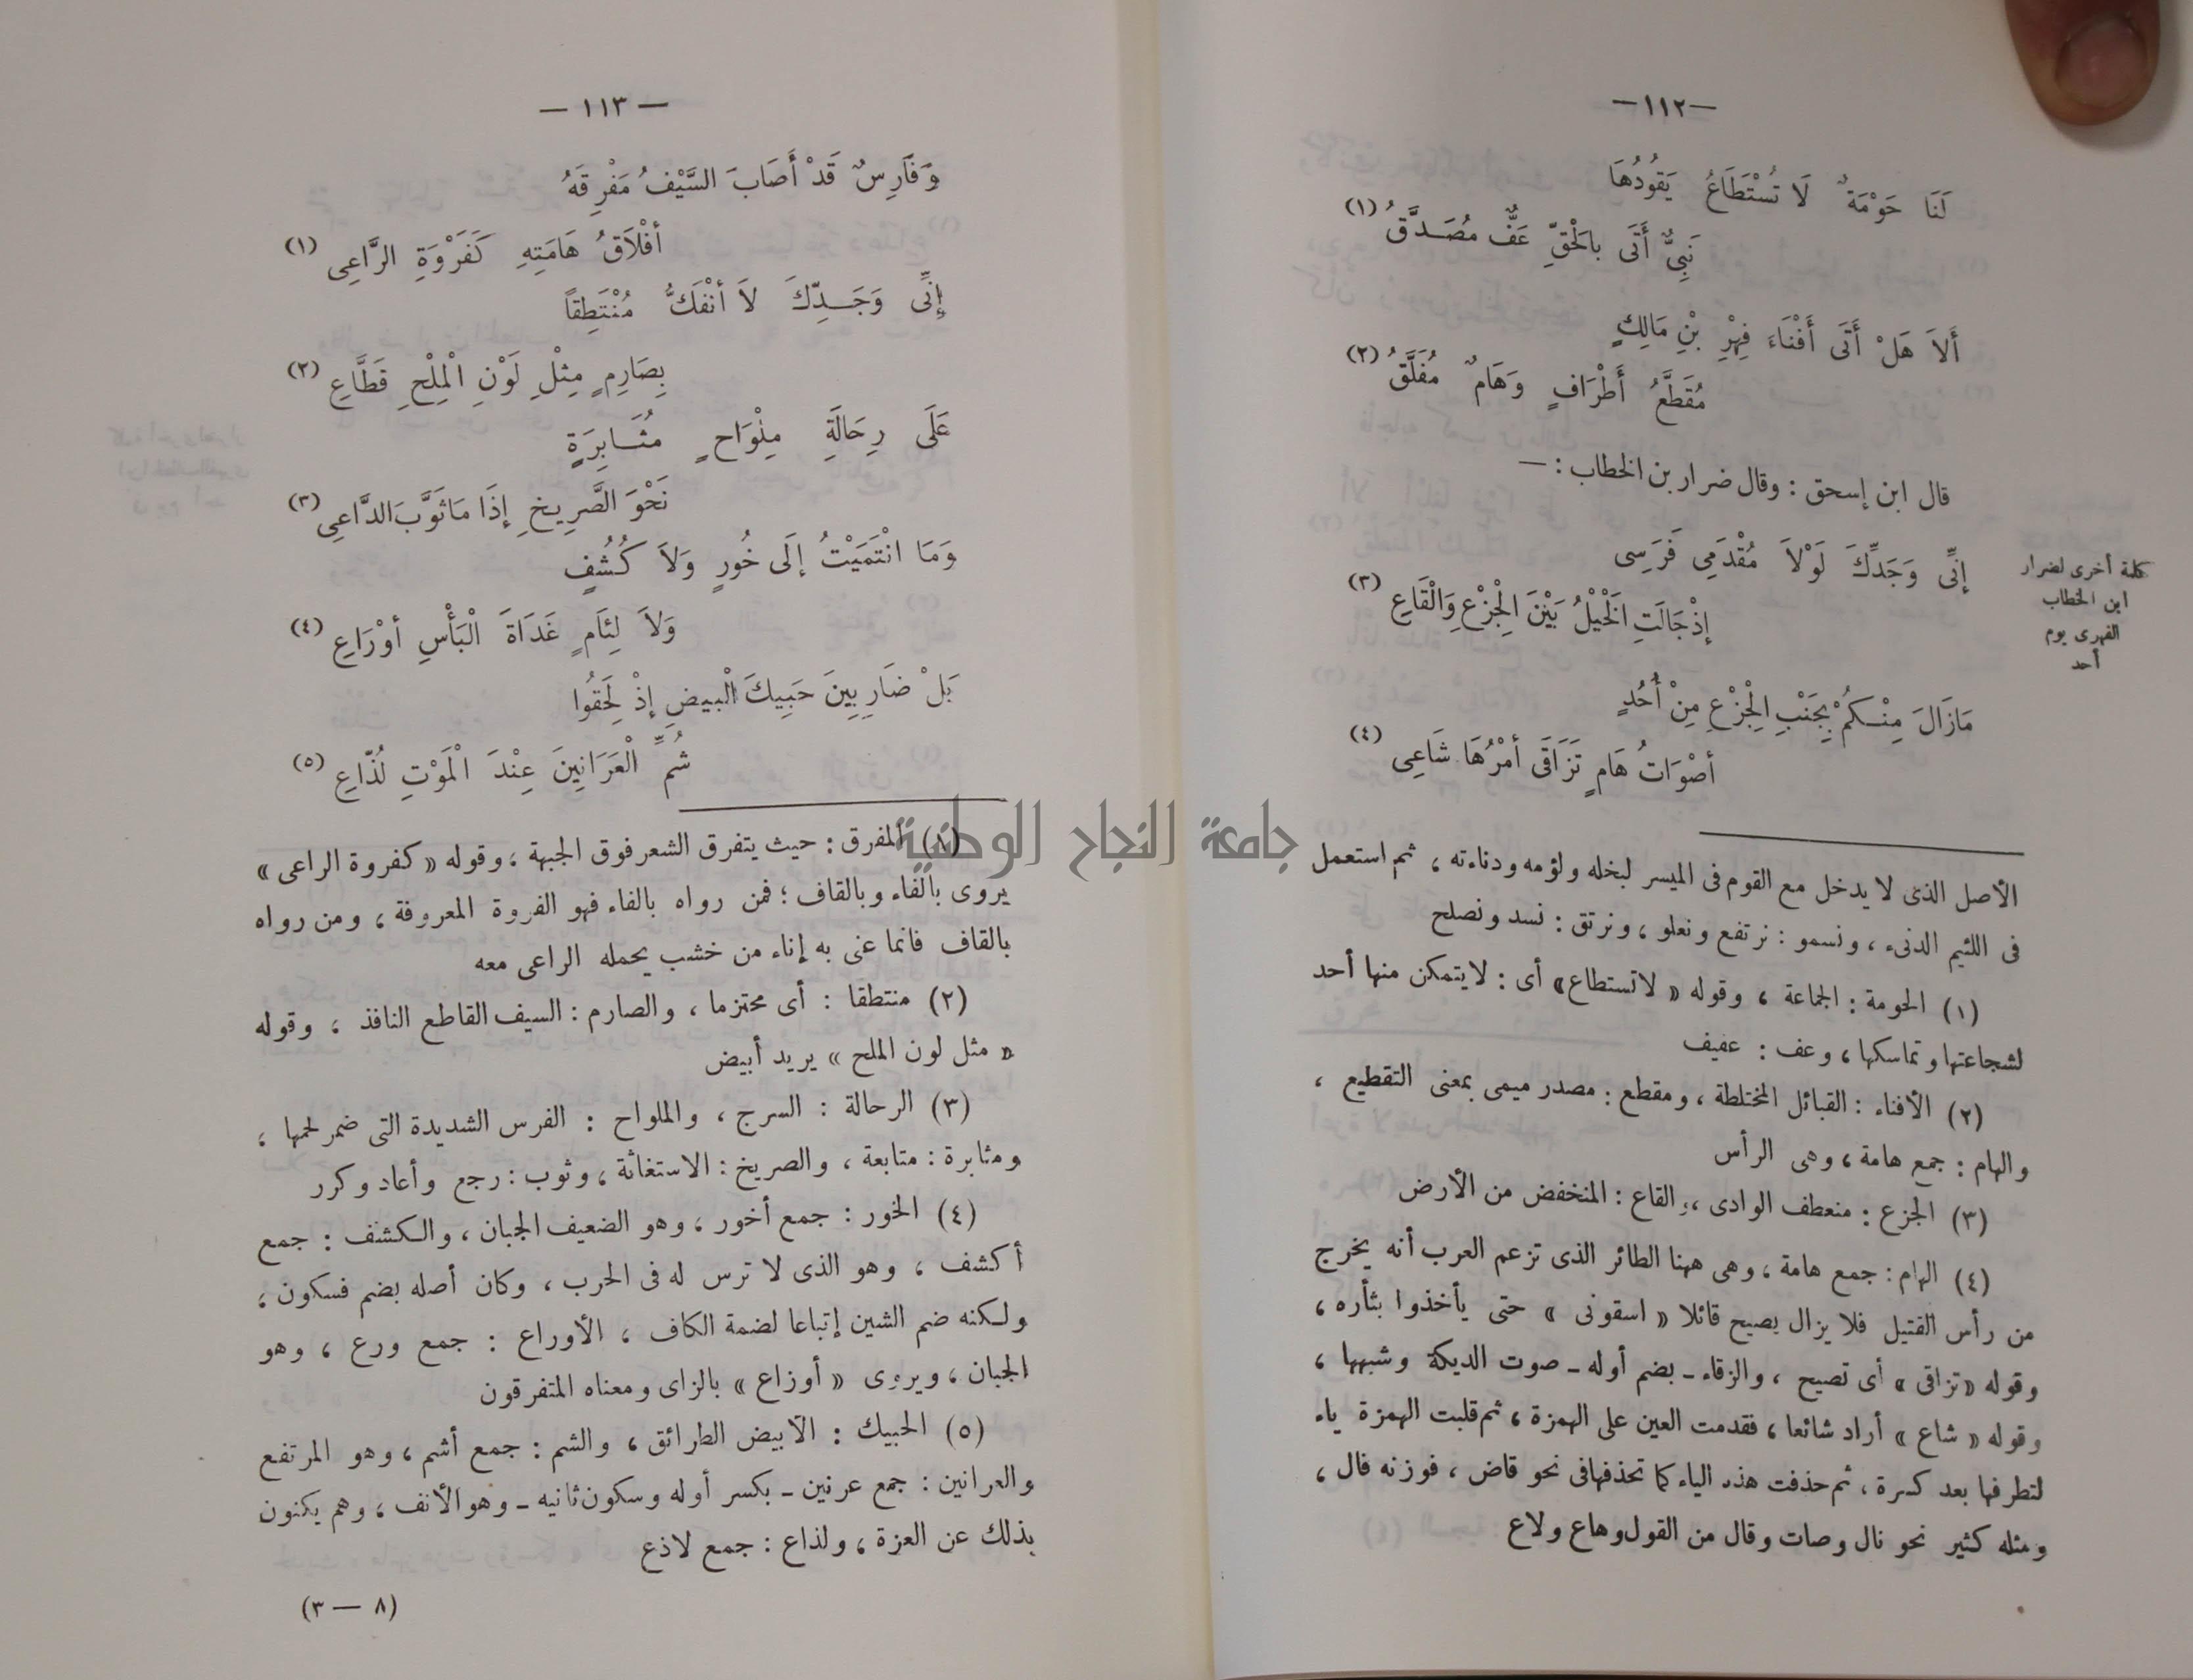 —١١٢—
لَنَا حَوْمَةٌ لَا تُسْتَطَاعُ يَقُودُهَا
نَبِيٌّ أَتَى بالَحْقِّ عَفٌّ مُصَدَّقُ (١)
أَلاَ هَلْ أَتَى أَفْنَاءَ فِهْرِ بْنِ مَالِكٍ
مُقَطَّعُ أَطْرَافٍ وَهَامٌ مُفَلَّقُ (٢)
قال ابن إسحق : وقال ضرار بن الخطاب : —
كلمة أخرى لضرار
ابن الخطاب
الفهرى يوم
أحد
إنِّى وَجَدِّكَ لَوْلاَ مُقْدَمِي فَرَسِى
إذْ جَالَتِ الَخْيْلُ بَيْنَ الِجْزْعِ وَالْقَاعِ (٣)
مَازَالَ مِنْكُمْ بِجَنْبِ الِجْزْعِ مِنْ أُحُدٍ
أصْوَاتُ هَامٍ تَزَاقَى أمْرُهَا شَاعِى (٤)
الأصل الذى لا يدخل مع القوم فى الميسر لبخله ولؤمه ودناءته ، ثم استعمل
فى اللئيم الدنىء ، ونسمو : نرتفع ونعلو ، ونرتق : نسد ونصلح
(١) الحومة : الجماعة ، وقوله « لاتستطاع » أى : لايتمكن منها أحد
لشجاعتها وتماسكها ، وعف : عفيف
(٢) الأفناء : القبائل المختلطة ، ومقطع : مصدر ميمى بمعنى التقطيع ،
والهام : جمع هامة ، وهى الرأس
(٣) الجزع : منعطف الوادى ، والقاع : المنخفض من الأرض
(٤) الهام : جمع هامة ، وهى ههنا الطائر الذى تزعم العرب أنه يخرج
من رأس القتيل فلا يزال يصيح قائلا « اسقونى » حتى يأخذوا بثأره ،
وقوله « تزاقى » أى تصيح ، والزقاء ـ بضم أوله ـ صوت الديكة وشبهها ،
وقوله « شاع » أراد شائعا ، فقدمت العين على الهمزة ، ثم قلبت الهمزة ياء
لتطرفها بعد كسرة ، ثم حذفت هذه الياء كما تحذفها فى نحو قاض ، فوزنه فال ،
ومثله كثير نحو نال وصات وقال من القول وهاع ولاع
— ١١٣ —
وَفَارِسٌ قَدْ أَصَابَ السَّيْفُ مَفْرِقَهُ
أفْلاَقُ هَامَتِهِ كَفَرْوَةِ الرَّاعِى (١)
إنِّى وَجَدِّكَ لاَ أنْفَكُّ مُنْتَطِقاً
بِصَارِمٍ مِثْلِ لَوْنِ الْمِلْحِ قَطَّاعِ (٢)
عَلَى رِحَالَةِ مِلْوَاحٍ مُثَابِرَةٍ
نَحْوَ الصَّرِيخِ إذَا مَاثَوَّبَ الدَّاعِى (٣)
وَمَا انْتَمَيْتُ إلَى خُورٍ وَلاَ كُشُفٍ
وَلاَ لِئَامٍ غَدَاةَ الْبَأْسِ أوْرَاعِ (٤)
بَلْ ضَارِبِينَ حَبِيكَ الْبيضِ إذْ لَحِقُوا
شُمِّ الْعَرَانِينَ عِنْدَ الْمَوْتِ لُذَّاعِ (٥)
(١) المفرق : حيث يتفرق الشعر فوق الجبهة ، وقوله « كفروة الراعى »
يروى بالفاء وبالقاف ؛ فمن رواه بالفاء فهو الفروة المعروفة ، ومن رواه
بالقاف فانما عنى به إناء من خشب يحمله الراعى معه
(٢) منتطقا : أى محتزما ، والصارم : السيف القاطع النافذ ، وقوله
« مثل لون الملح » يريد أبيض
(٣) الرحالة : السرج ، والملواح : الفرس الشديدة التى ضمر لحمها ،
ومثابرة : متابعة ، والصريخ : الاستغاثة ، وثوب : رجع وأعاد وكرر
(٤) الخور : جمع أخور ، وهو الضعيف الجبان ، والكشف : جمع
أكشف ، وهو الذى لا ترس له فى الحرب ، وكان أصله بضم فسكون ،
ولكنه ضم الشين إتباعا لضمة الكاف ، الأوراع : جمع ورع ، وهو
الجبان ، ويروى « أوزاع » بالزاى ومعناه المتفرقون
(٥) الحبيك : الآبيض الطرائق ، والشم : جمع أشم ، وهو المرتفع
والعرانين : جمع عرنين ـ بكسر أوله وسكون ثانيه ـ وهو الأنف ، وهم يكنون
بذلك عن العزة ، ولذاع : جمع لاذع
(٨ — ٣)
جامعة النجاح الوطنية